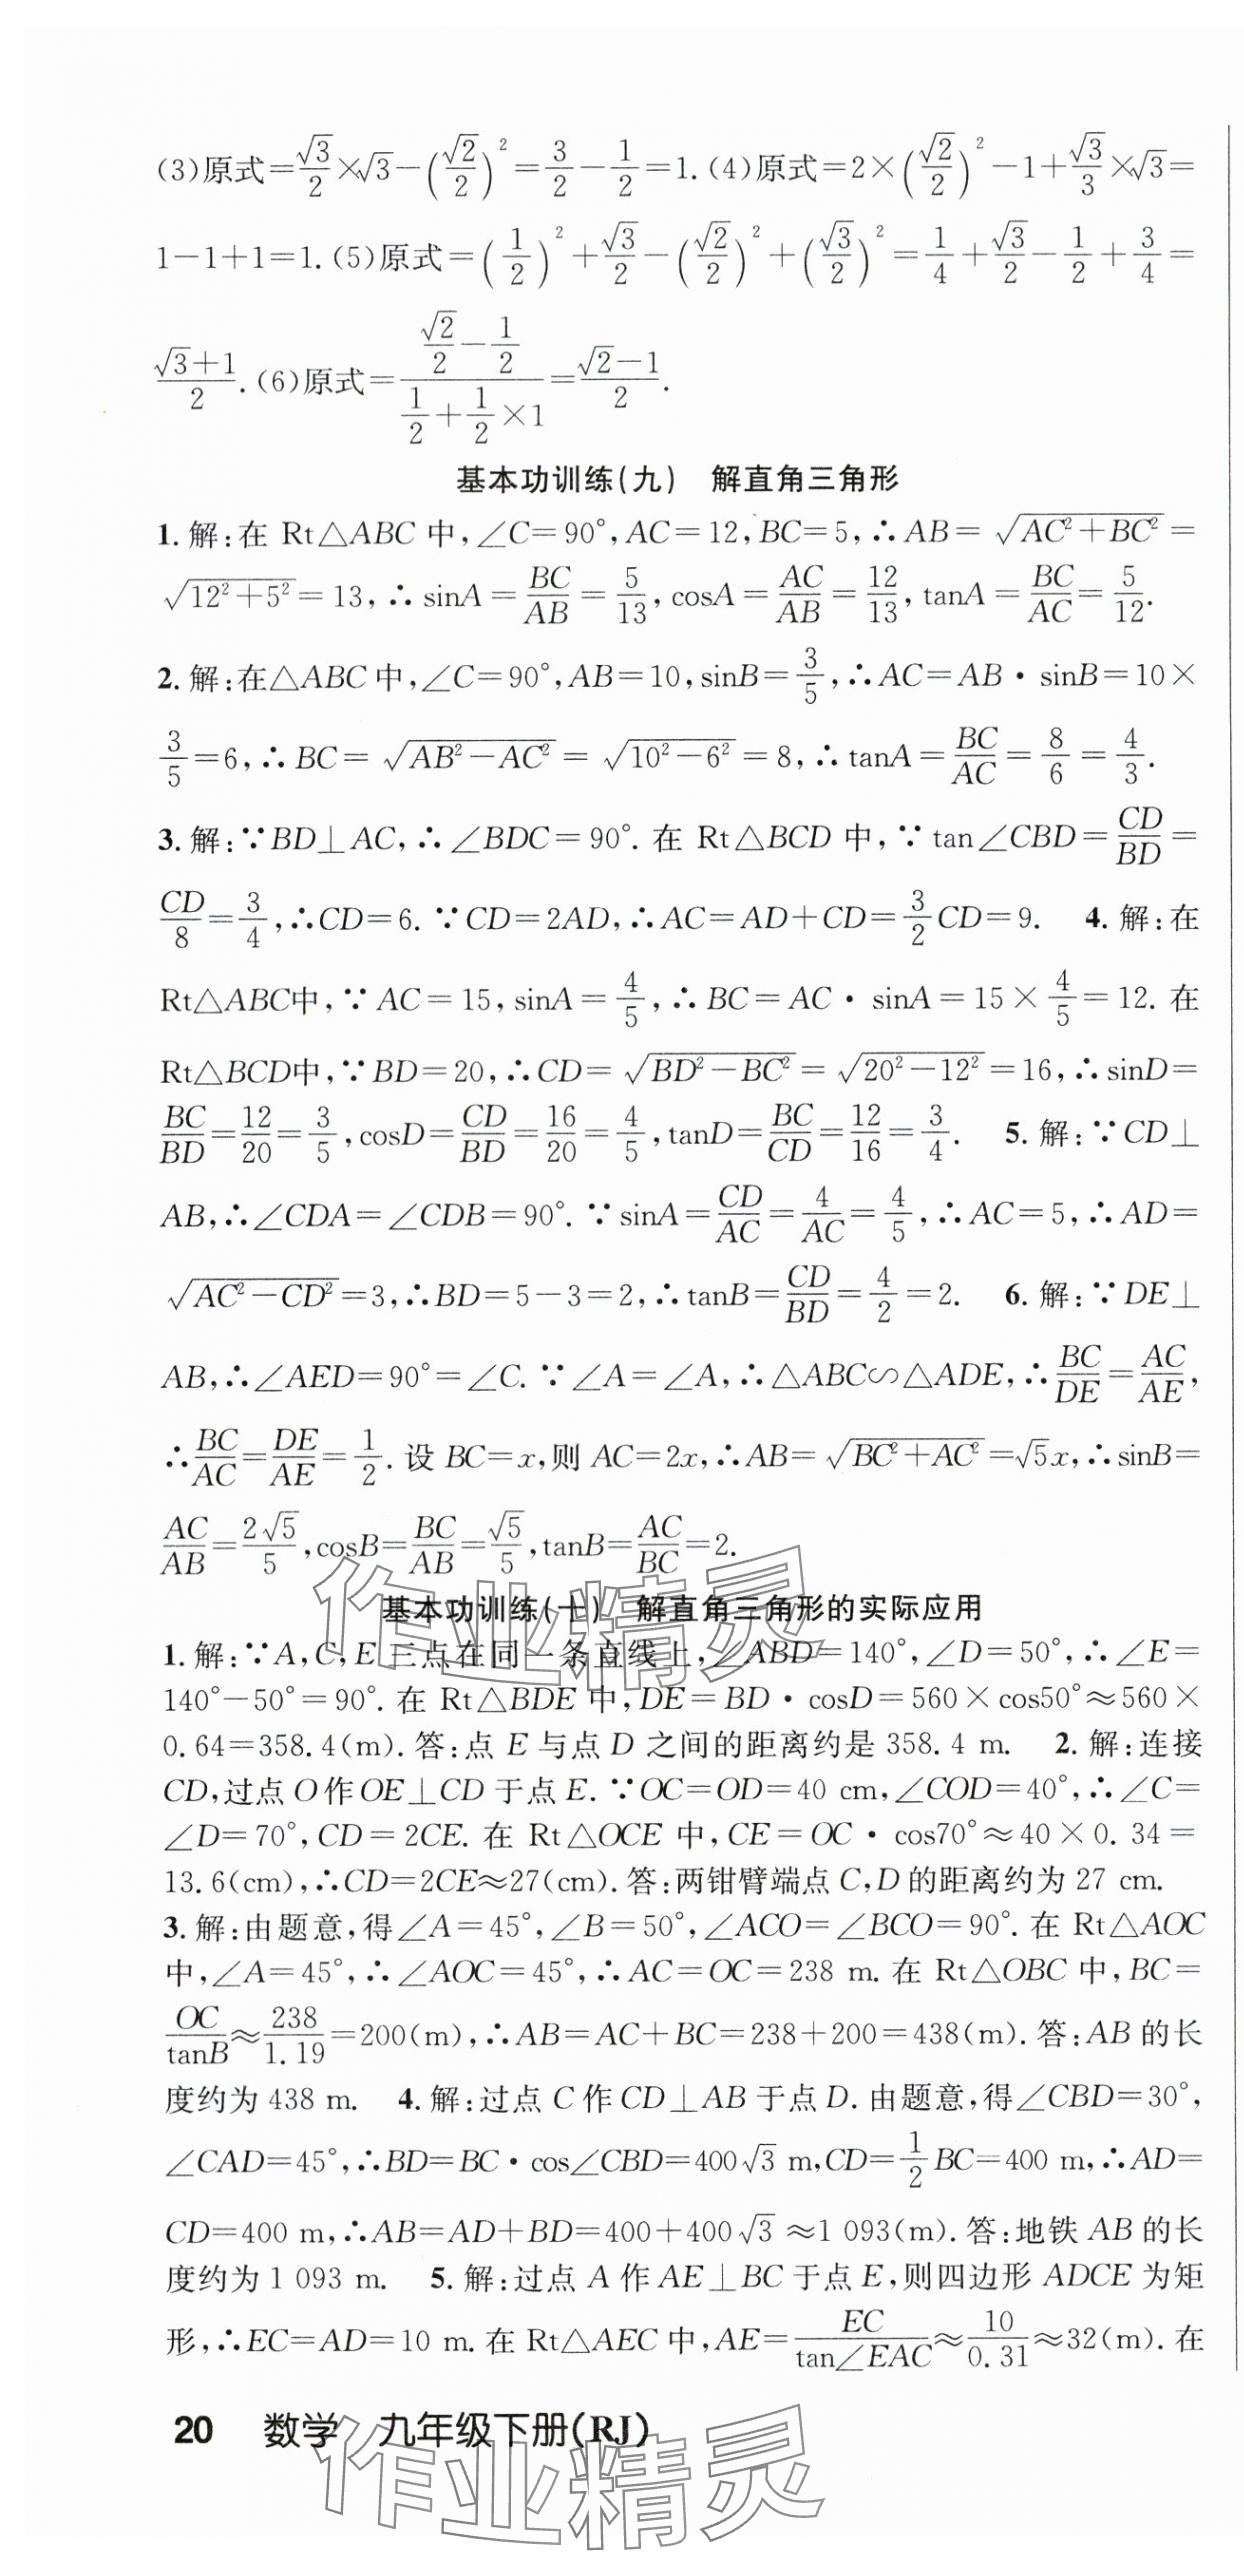 (3)原式=√3/2×√3-(√2/2)²=3/2-1/2=1.(4)原式=2×(√2/2)²-1+√3/3×√3=
1-1+1=1.(5)原式=(1/2)²+√3/2-(√2/2)²+(√3/2)²=1/4+√3/2-1/2+3/4=
(√3+1)/2.(6)原式=(√2/2-1/2)/(1/2+1/2×1)=(√2-1)/2.
基本功训练(九) 解直角三角形
1.解:在 Rt△ABC 中,∠C=90°,AC=12,BC=5,∴AB=√(AC²+BC²)=
√(12²+5²)=13,∴sinA=BC/AB=5/13,cosA=AC/AB=12/13,tanA=BC/AC=5/12.
2.解:在△ABC 中,∠C=90°,AB=10,sinB=3/5,∴AC=AB·sinB=10×
3/5=6,∴BC=√(AB²-AC²)=√(10²-6²)=8,∴tanA=BC/AC=8/6=4/3.
3.解:∵BD⊥AC,∴∠BDC=90°.在 Rt△BCD 中,∵tan∠CBD=CD/BD=
CD/8=3/4,∴CD=6.∵CD=2AD,∴AC=AD+CD=3/2CD=9. 4.解:在
Rt△ABC中,∵AC=15,sinA=4/5,∴BC=AC·sinA=15×4/5=12.在
Rt△BCD中,∵BD=20,∴CD=√(BD²-BC²)=√(20²-12²)=16,∴sinD=
BC/BD=12/20=3/5,cosD=CD/BD=16/20=4/5,tanD=BC/CD=12/16=3/4. 5.解:∵CD⊥
AB,∴∠CDA=∠CDB=90°.∵sinA=CD/AC=4/AC=4/5,∴AC=5,∴AD=
√(AC²-CD²)=3,∴BD=5-3=2,∴tanB=CD/BD=4/2=2. 6.解:∵DE⊥
AB,∴∠AED=90°=∠C.∵∠A=∠A,∴△ABC∽△ADE,∴BC/DE=AC/AE,
∴BC/AC=DE/AE=1/2.设 BC=x,则 AC=2x,∴AB=√(BC²+AC²)=√5x,∴sinB=
AC/AB=2√5/5,cosB=BC/AB=√5/5,tanB=AC/BC=2.
基本功训练(十) 解直角三角形的实际应用
1.解:∵A,C,E 三点在同一条直线上,∠ABD=140°,∠D=50°,∴∠E=
140°-50°=90°.在 Rt△BDE 中,DE=BD·cosD=560×cos50°≈560×
0.64=358.4(m).答:点 E 与点 D 之间的距离约是 358.4 m. 2.解:连接
CD,过点 O 作 OE⊥CD 于点 E.∵OC=OD=40 cm,∠COD=40°,∴∠C=
∠D=70°,CD=2CE.在 Rt△OCE 中,CE=OC·cos70°≈40×0.34=
13.6(cm),∴CD=2CE≈27(cm).答:两钳臂端点 C,D 的距离约为 27 cm.
3.解:由题意,得∠A=45°,∠B=50°,∠ACO=∠BCO=90°.在 Rt△AOC
中,∠A=45°,∴∠AOC=45°,∴AC=OC=238 m.在 Rt△OBC 中,BC=
OC/tanB≈238/1.19=200(m),∴AB=AC+BC=238+200=438(m).答:AB 的长
度约为 438 m. 4.解:过点 C 作 CD⊥AB 于点 D.由题意,得∠CBD=30°,
∠CAD=45°,∴BD=BC·cos∠CBD=400√3 m,CD=1/2BC=400 m,∴AD=
CD=400 m,∴AB=AD+BD=400+400√3≈1 093(m).答:地铁 AB 的长
度约为 1 093 m. 5.解:过点 A 作 AE⊥BC 于点 E,则四边形 ADCE 为矩
形,∴EC=AD=10 m.在 Rt△AEC 中,AE=EC/tan∠EAC≈10/0.31≈32(m).在
20 数学 九年级下册(RJ)
作业精灵
作业精灵